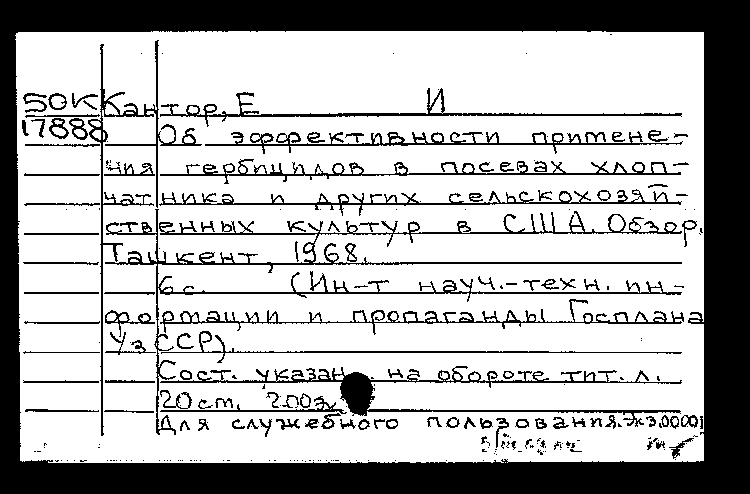 50К Кантор, Е И
17888 Об эффективности примене-
ния гербицидов в посевах хлоп-
чатника и других сельскохозяй-
ственных культур в США. Обзор.
Ташкент, 1968.
6с. (Ин-т науч.-техн. ин-
формации и пропаганды Госплана
УзССР).
Сост. указан на обороте тит. л.
20cm. 200э
Для служебного пользования. Экз.00001